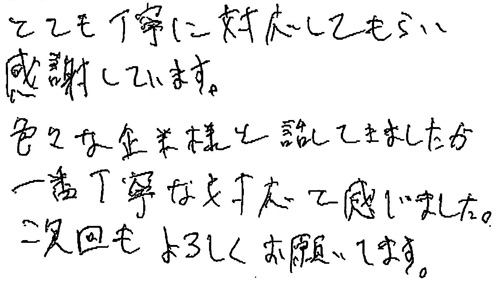 とても丁寧に対応してもらい
感謝しています。
色々な企業様と話してきましたが
一番丁寧な対応で感じました。
次回もよろしくお願いします。